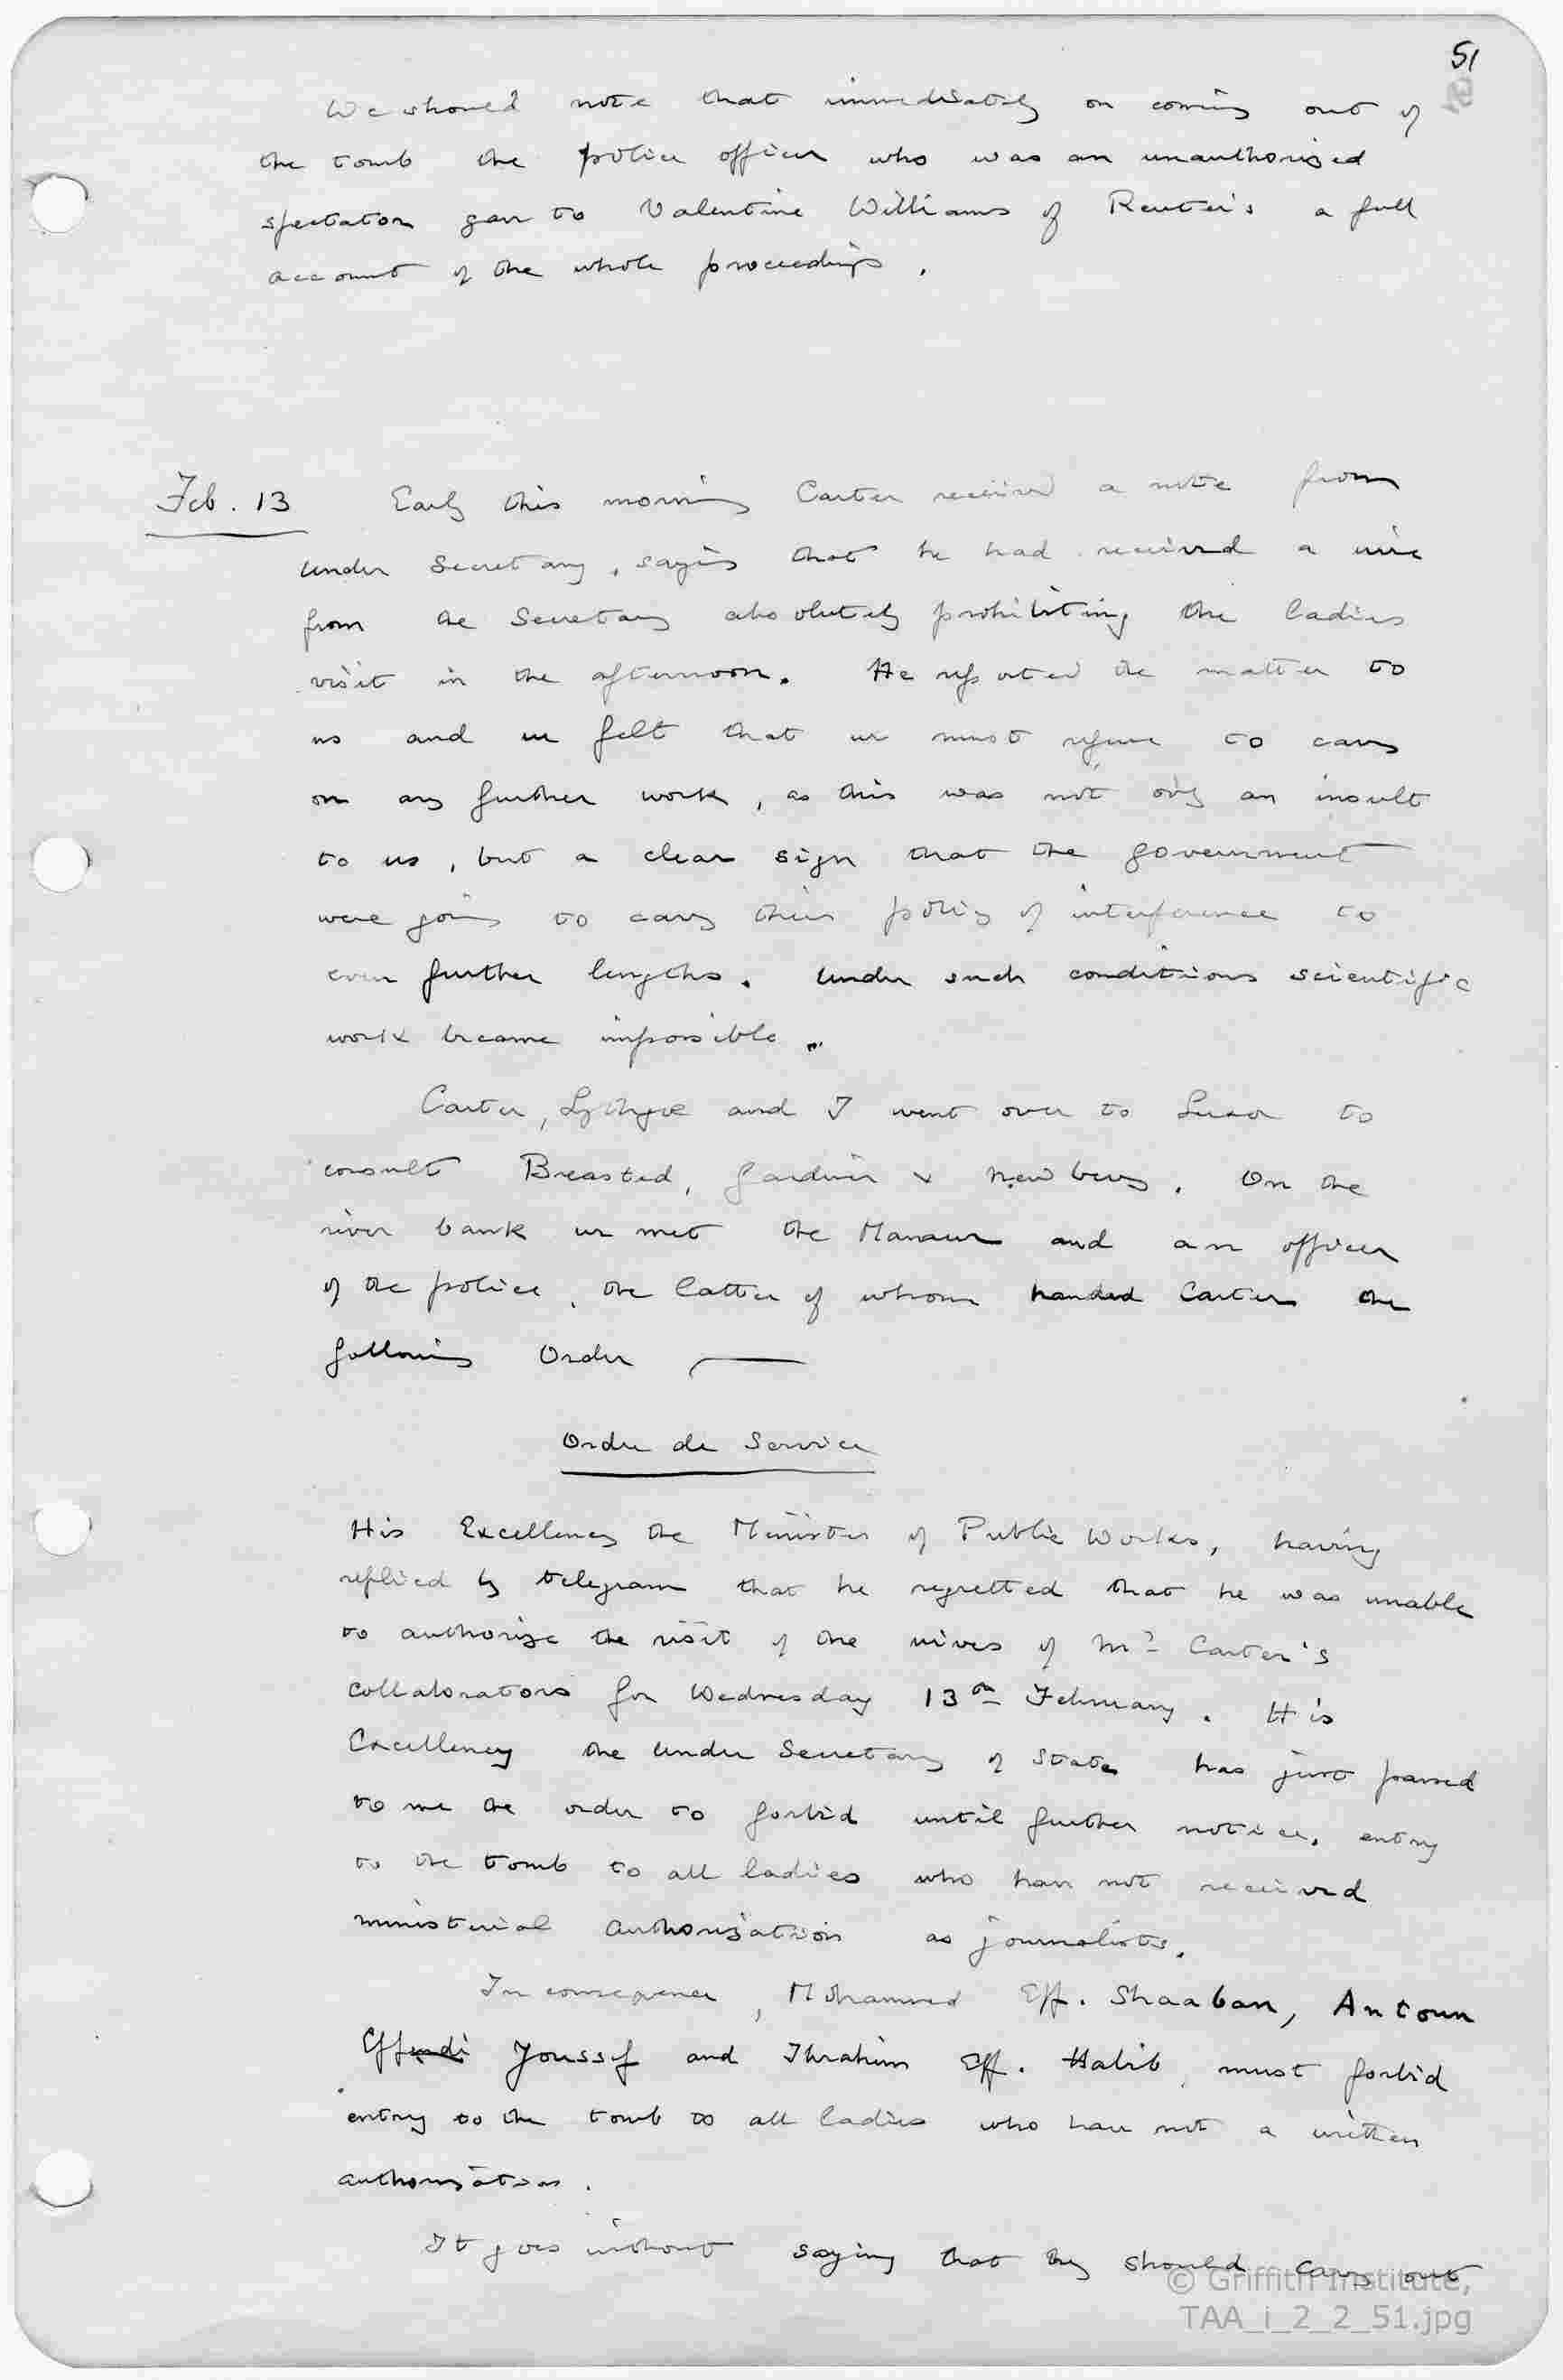 51
We should note that immediately on coming out of
the tomb the police officer who was an unauthorised
spectator gave to Valentine Williams of Reuter's a full
account of the whole proceedings.
Feb. 13 Early this morning Carter received a note from
under Secretary, saying that he had received a wire
from the Secretary absolutely prohibiting the ladies
visit in the afternoon. He reported the matter to
us and we felt that we must refuse to carry
on any further work, as this was not only an insult
to us, but a clear sign that the government
were going to carry their policy of interference to
even further lengths. Under such conditions scientific
work became impossible.
Carter, Lythgoe and I went over to Luxor to
consult Breasted, Gardiner & Newberry. On the
river bank we met the Mamur and an officer
of the police, the latter of whom handed Carter the
following Order —
Ordre de Service
His Excellency the Minister of Public Works, having
replied by telegram that he regretted that he was unable
to authorize the visit of the wives of Mr Carter's
collaborators for Wednesday 13th February. His
Excellency the Under Secretary of State has just passed
to me the order to forbid until further notice, entry
to the tomb to all ladies who have not received
ministerial authorisation as journalists.
In consequence, Mohammed Eff. Shaaban, Antoun
Effendi Youssef and Ibrahim Eff. Habib, must forbid
entry to the tomb to all ladies who have not a written
authorisation.
It goes without saying that they should carry out
© Griffith Institute,
TAA_i_2_2_51.jpg